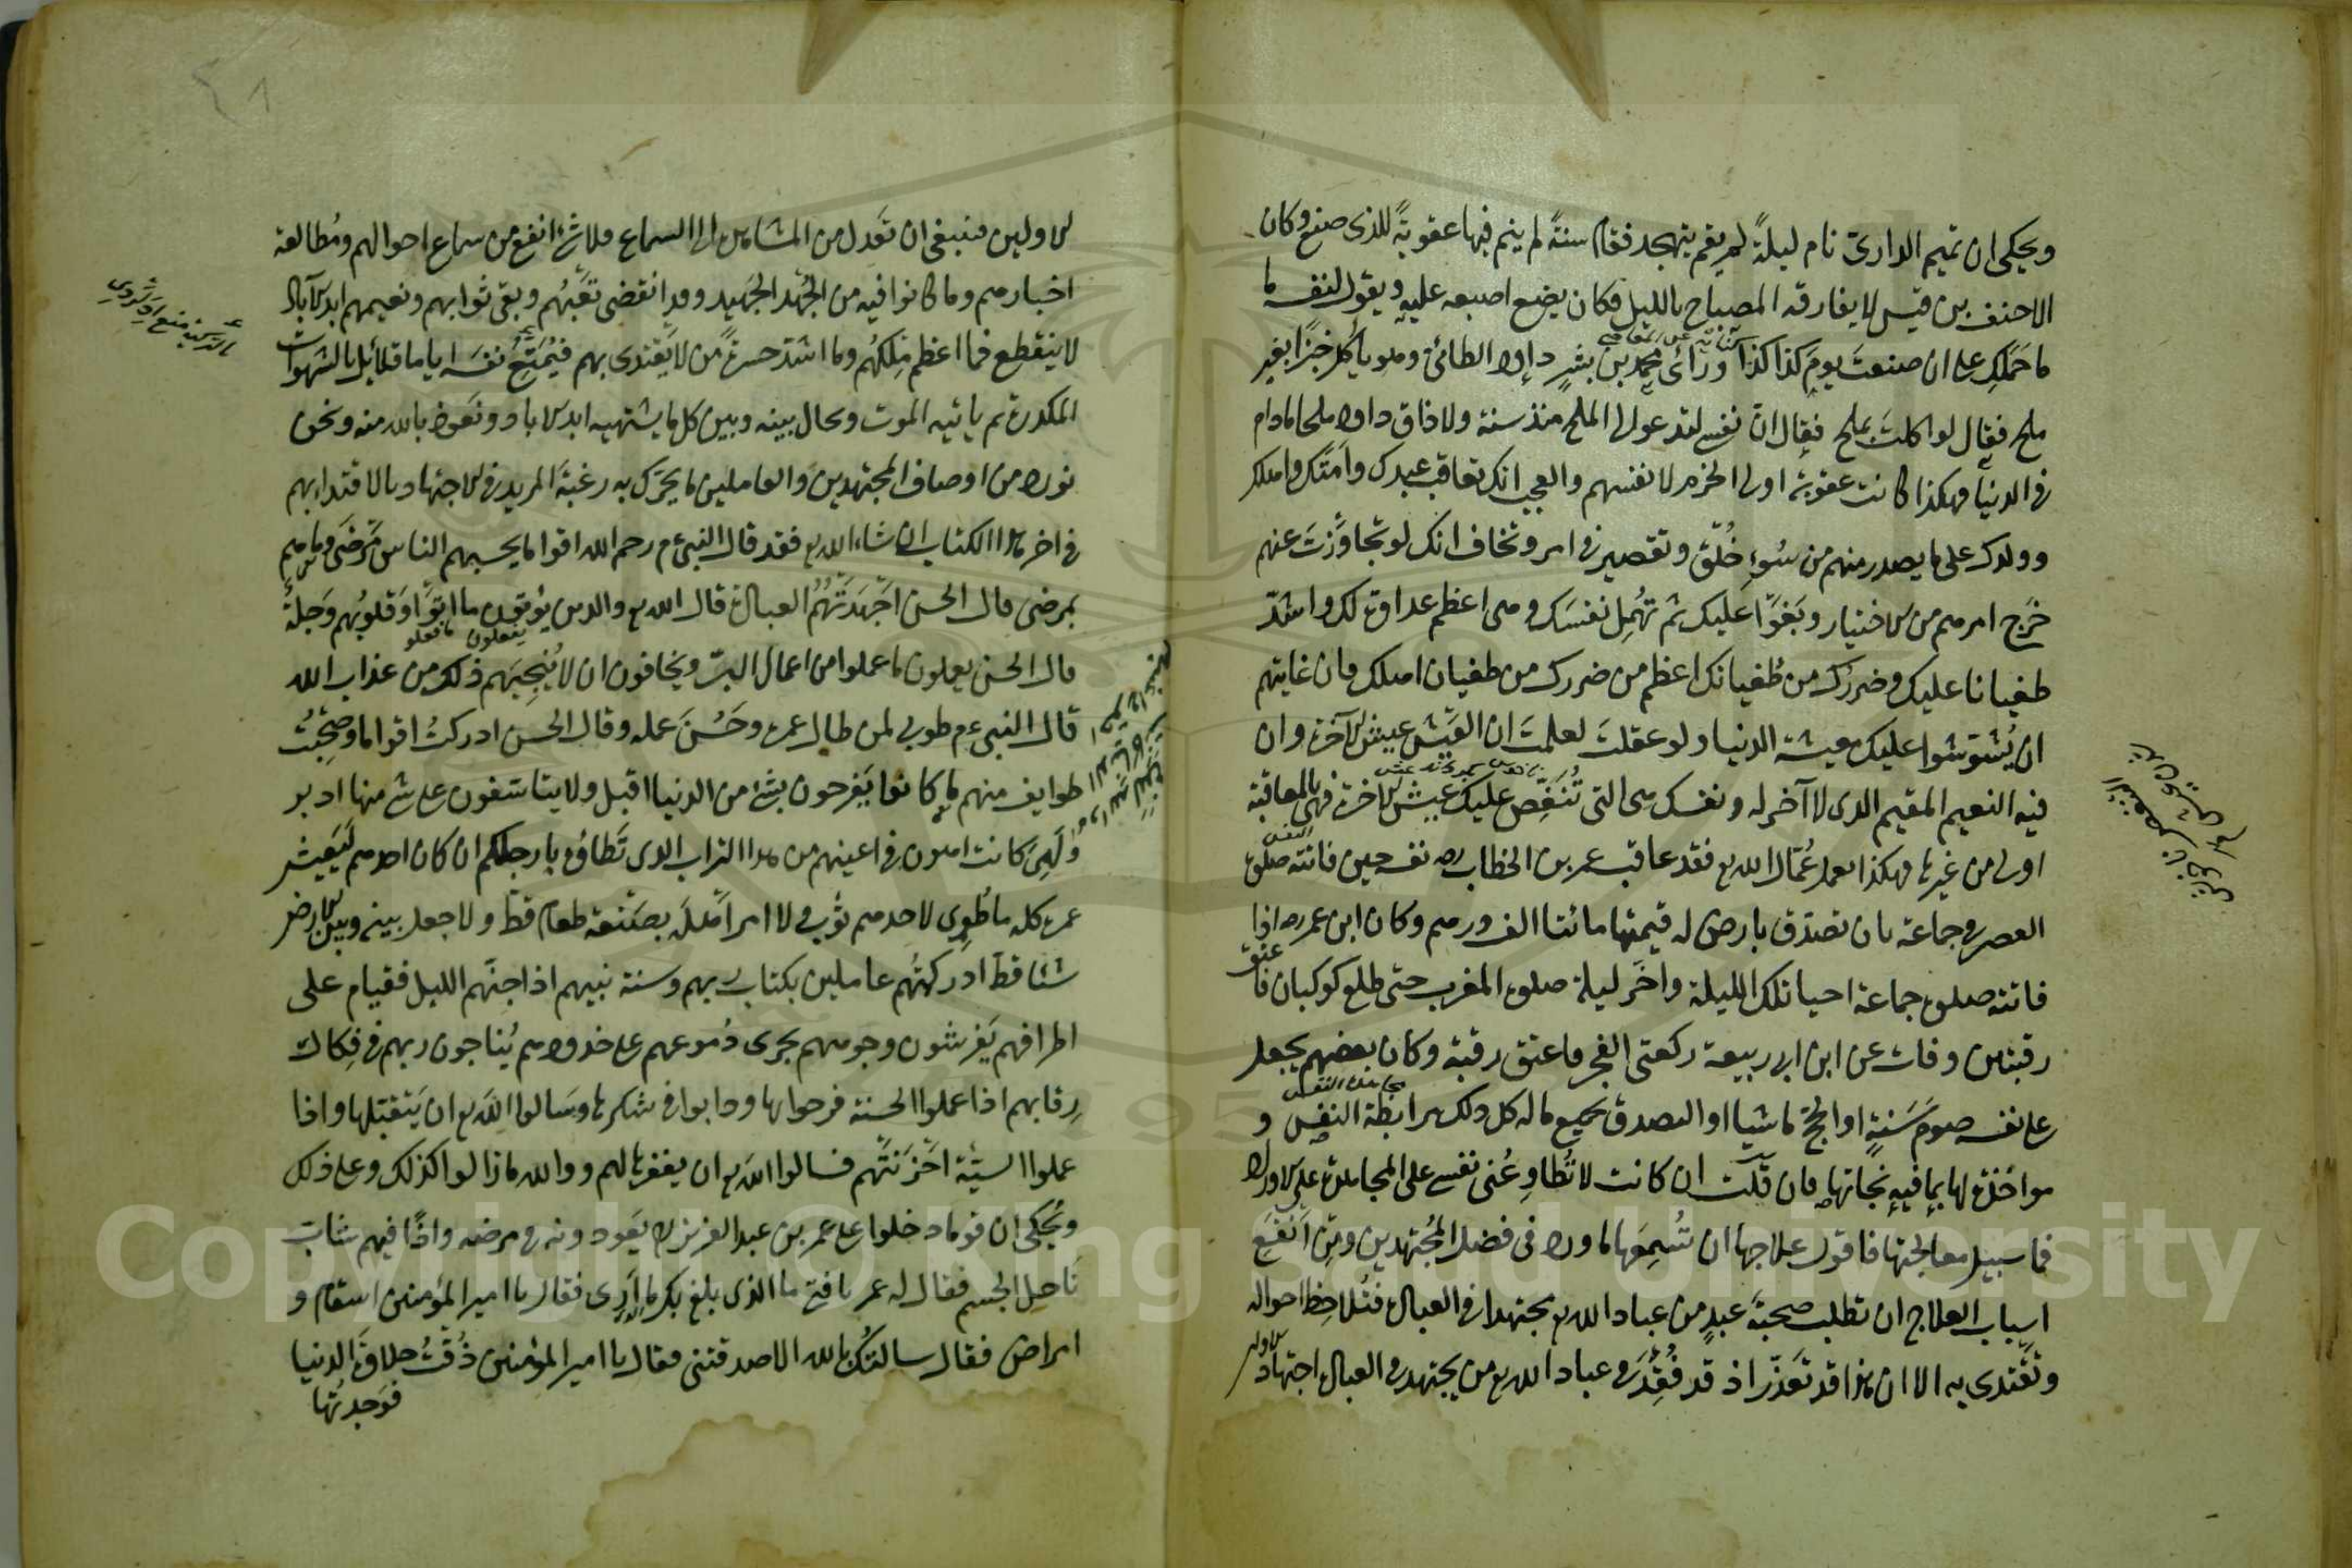 ويحكى ان تميم الدارى نام ليلةً لم يقم يتهجد فقام سنةً لم ينم فيها عقوبةً للذى صنع وكان
الاحنف بن قيس لا يفارقه المصباح بالليل فكان يضع اصبعه عليه ويقول لنفسه ما
ما حملك على ان صنعت يوم كذا كذا ورأى محمد بن بشر داود الطائى وهو يأكل خبزا بغير
ملح فقال لو اكلت بملح فقال ان نفسى لتدعو الى الملح منذ سنة ولا ذاق داود ملحا مادام
فى الدنيا فهكذا كانت عقوبة اولى الحزم لانفسهم والعجب انك تعاقب عبدك وامتك واهلك
وولدك على ما يصدر منهم من سوء خلق وتقصير فى امر وتخاف انك لو تجاوزت عنهم
خرج امرهم من الاختيار وبغوا عليك ثم تهمل نفسك وهى اعظم عداوة لك واشد
طغيانا عليك وضررك من طغيانك اعظم من ضررك من طغيان اهلك فان غايتهم
ان يشوشوا عليك معيشة الدنيا ولو عقلت لعلمت ان العيش عيش الآخرة وان
فيه النعيم المقيم الذى لا آخر له ونفسك هى التى تنغص عليك عيش الآخرة فهى بالمعاقبة
اولى من غيرها فهكذا يعمل عمال الله تع فقد عاقب عمر بن الخطاب رضه نفسه حين فاتته صلوة
العصر فى جماعة بان تصدق بارض له قيمتها مائتا الف درهم وكان ابن عمر رضه اذا
فاتته صلوة جماعة احيا تلك الليلة واخر ليلة صلوة المغرب حتى طلع كوكبان فاعتق
رقبتين وفات عن ابن ابى ربيعة ركعتى الفجر فاعتق رقبة وكان بعضهم يجعل
على نفسه صوم سنة او الحج ماشيا او التصدق بجميع ماله كل ذلك مرابطة النفس و
مواخذة لها بما فيه نجاتها فان قلت ان كانت لا تطاوعنى نفسى على المجاهدة على الاوراد
فما سبيل معالجتها فاقول علاجها ان تسمعها ما ورد فى فضل المجتهدين ومن انفع
اسباب العلاج ان تطلب صحبة عبد من عباد الله تع مجتهدا فى العبادة فتلاحظ احواله
وتقتدى به الا ان هذا قد تعذر اذ قد فقد فى عباد الله تع من يجتهد فى العبادة اجتهاد الاولين
الاولين فينبغى ان تعدل من المشاهدة الى السماع فلا شئ انفع من سماع احوالهم ومطالعة
اخبارهم وما كانوا فيه من الجهد الجهيد وقد انقضى تعبهم وبقى ثوابهم ونعيمهم ابد الآباد
لا ينقطع فما اعظم ملكهم وما اشد حسرة من لا يقتدى بهم فيمتع نفسه اياما قلائل بالشهوات
المكدرة ثم ياتيه الموت وحال بينه وبين كل ما يشتهيه ابد الاباد ونعوذ بالله منه ونحن
نورد من اوصاف المجتهدين والعاملين ما يحرك به رغبة المريد فى الاجتهاد بالاقتداء بهم
فى اخر هذا الكتاب ان شاء الله تع فقد قال النبى ع م رحم الله اقواما يحسبهم الناس مرضى وما هم
بمرضى قال الحسن اجهدتهم العبادة قال الله تع والذين يؤتون ما اتوا وقلوبهم وجلة
قال الحسن يعملون ما عملوا من اعمال البر ويخافون ان لا ينجيهم ذلك من عذاب الله
قال النبى ع م طوبى لمن طال عمره وحسن عمله وقال الحسن ادركت اقواما وصحبت
طوايف منهم ما كانوا يفرحون بشئ من الدنيا اقبل ولا يتاسفون على شئ منها ادبر
ولهى كانت اهون فى اعينهم من هذا التراب الذى تطاؤه بارجلكم ان كان احدهم ليعيش
عمره كله ما طوى لاحدهم ثوب ولا امر اهله بصنعة طعام قط ولا جعل بينه وبين الارض
شئا قط ادركتهم عاملين بكتاب ربهم وسنة نبيهم اذا جنهم الليل فقيام على
اطرافهم يفرشون وجوههم تجرى دموعهم على خدودهم يناجون ربهم فى فكاك
رقابهم اذا عملوا الحسنة فرحوا بها ودابوا فى شكرها وسالوا الله تع ان يتقبلها واذا
عملوا السيئة احزنتهم فسالوا الله تع ان يغفرها لهم ووالله ما زالوا كذلك وعلى ذلك
ويحكى ان قوما دخلوا على عمر بن عبد العزيز يعودونه فى مرضه واذا فيهم شاب
ناحل الجسم فقال له عمر يا فتى ما الذى بلغ بك ما ارى فقال يا امير المؤمنين اسقام و
امراض فقال سالتك بالله الا صدقتنى فقال يا امير المؤمنين ذقت حلاوة الدنيا
فوجدتها
Copyright © King Saud University